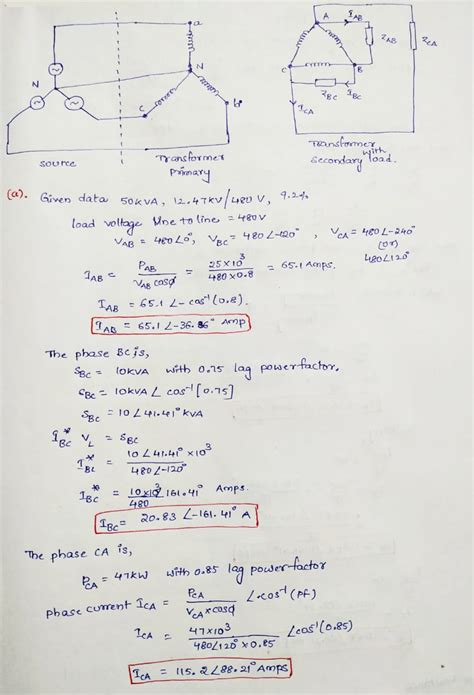 a
N
N
C
b
source
Transformer
Primary
A
I_AB
Z_AB
Z_CA
C
B
Z_BC
I_BC
I_CA
Transformer with
secondary load.
(a). Given data 50KVA, 12.47KV/480 V, 9.2%
load voltage line to line = 480V
V_AB = 480∠0°, V_BC = 480∠-120°, V_CA = 480∠-240°
(or)
480∠120°
I_AB = P_AB / V_AB cosϕ = 25×10³ / 480×0.8 = 65.1 Amps.
I_AB = 65.1∠-cos⁻¹(0.8).
I_AB = 65.1∠-36.86° Amp
The phase BC is,
S_BC = 10KVA with 0.75 lag powerfactor.
S_BC = 10KVA∠cos⁻¹[0.75]
S_BC = 10∠41.41° KVA
I_BC* V_L = S_BC
I_BC* = 10∠41.41° ×10³ / 480∠-120°
I_BC* = 10×10³/480 ∠161.41° Amps.
I_BC = 20.83∠-161.41° A
The phase CA is,
P_CA = 47KW with 0.85 lag powerfactor
phase current I_CA = P_CA / V_CA×cosϕ ∠cos⁻¹(Pf)
I_CA = 47×10³ / 480∠120°×0.85 ∠cos⁻¹(0.85)
I_CA = 115.2∠88.21° Amps